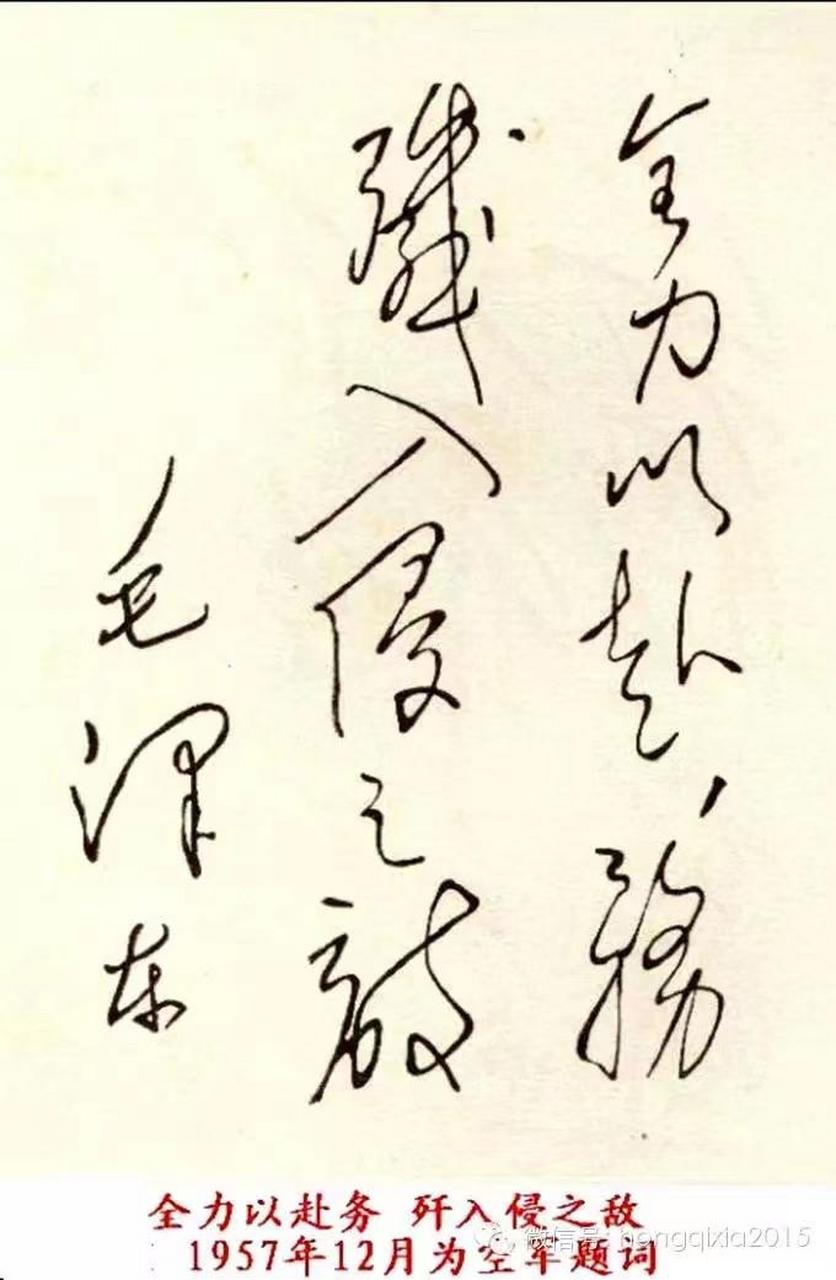 全力以赴，務
殲入侵之敵
毛澤东
全力以赴务 歼入侵之敌
1957年12月为空军题词
微信号: hongqixia2015